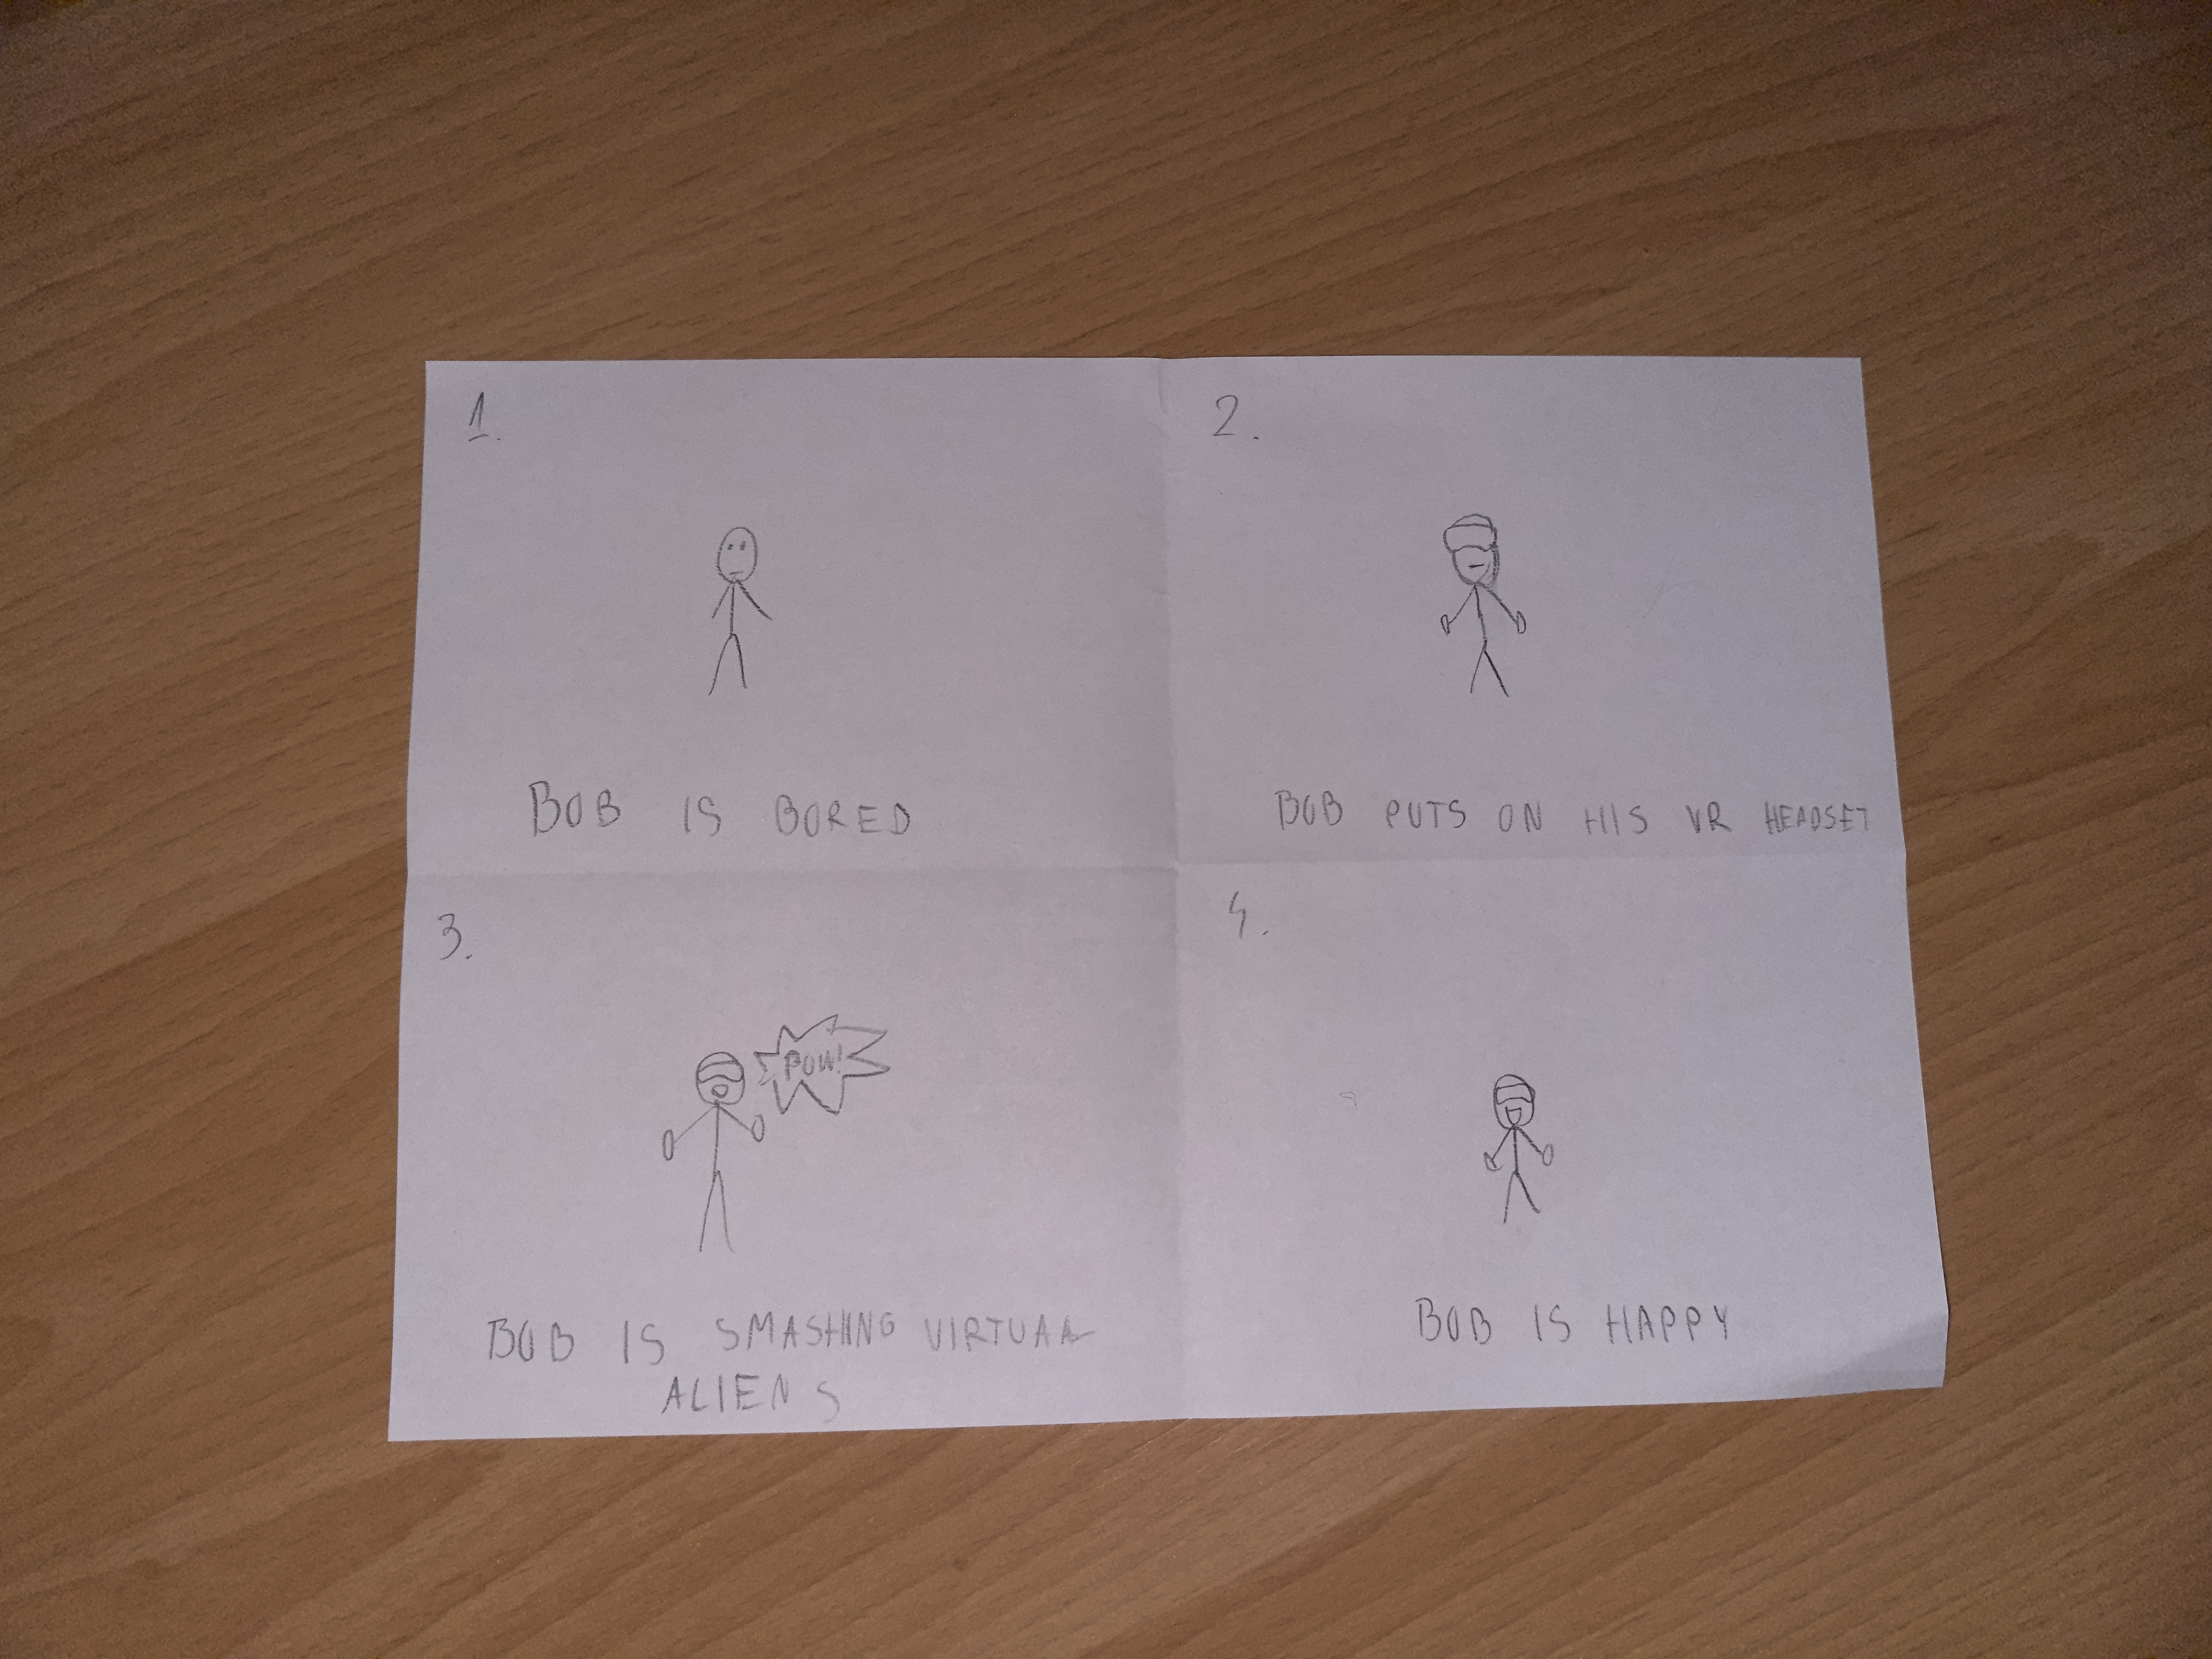 1.
BOB IS BORED
2.
BOB PUTS ON HIS VR HEADSET
3.
POW!
BOB IS SMASHING VIRTUAL
ALIENS
4.
BOB IS HAPPY